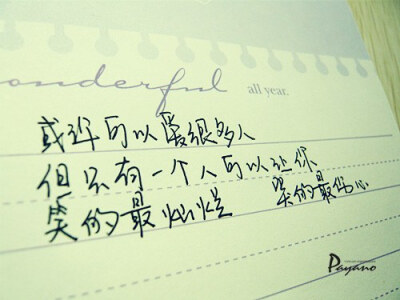 onderful all year.
或许可以爱很多人
但只有一个人可以让你
笑的最灿烂 哭的最伤心
Payano